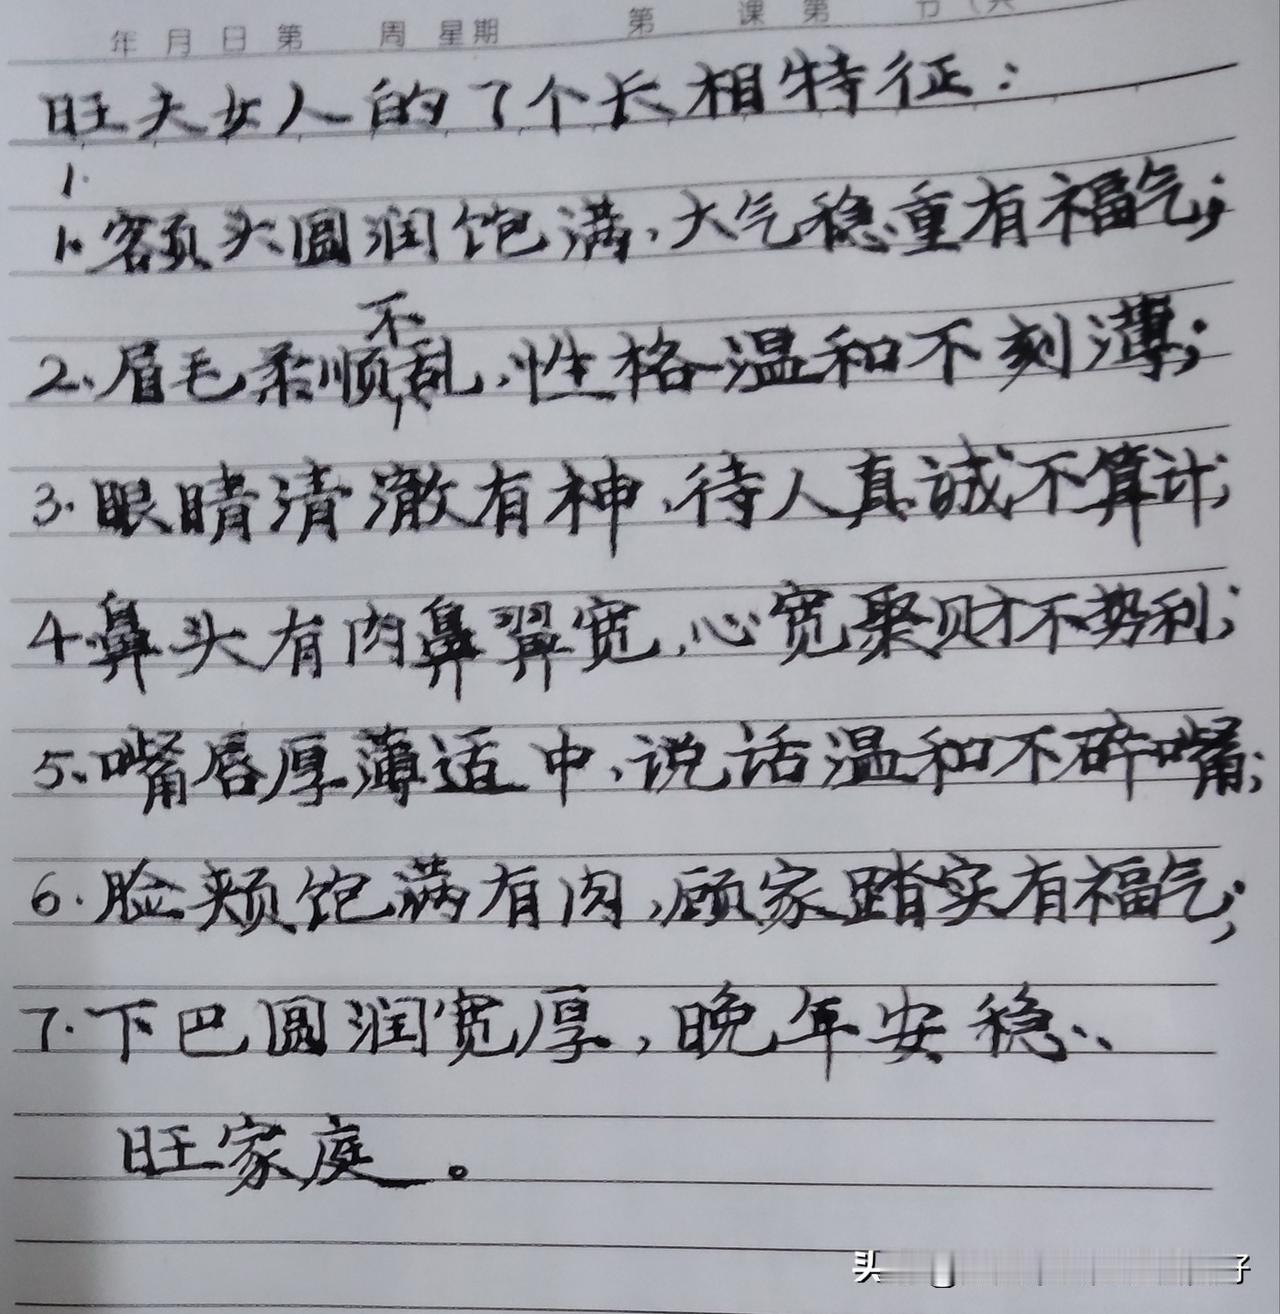 年 月 日 第 周 星期 第 课 第 节（共
旺夫女人的7个长相特征：
1.
1.额头圆润饱满、大气稳重有福气；
2、眉毛柔顺不乱、性格温和不刻薄；
3.眼睛清澈有神、待人真诚不算计；
4.鼻头有肉鼻翼宽、心宽聚财不势利；
5、嘴唇厚薄适中、说话温和不碎嘴；
6.脸颊饱满有肉、顾家踏实有福气；
7.下巴圆润宽厚，晚年安稳、
旺家庭。
头 子